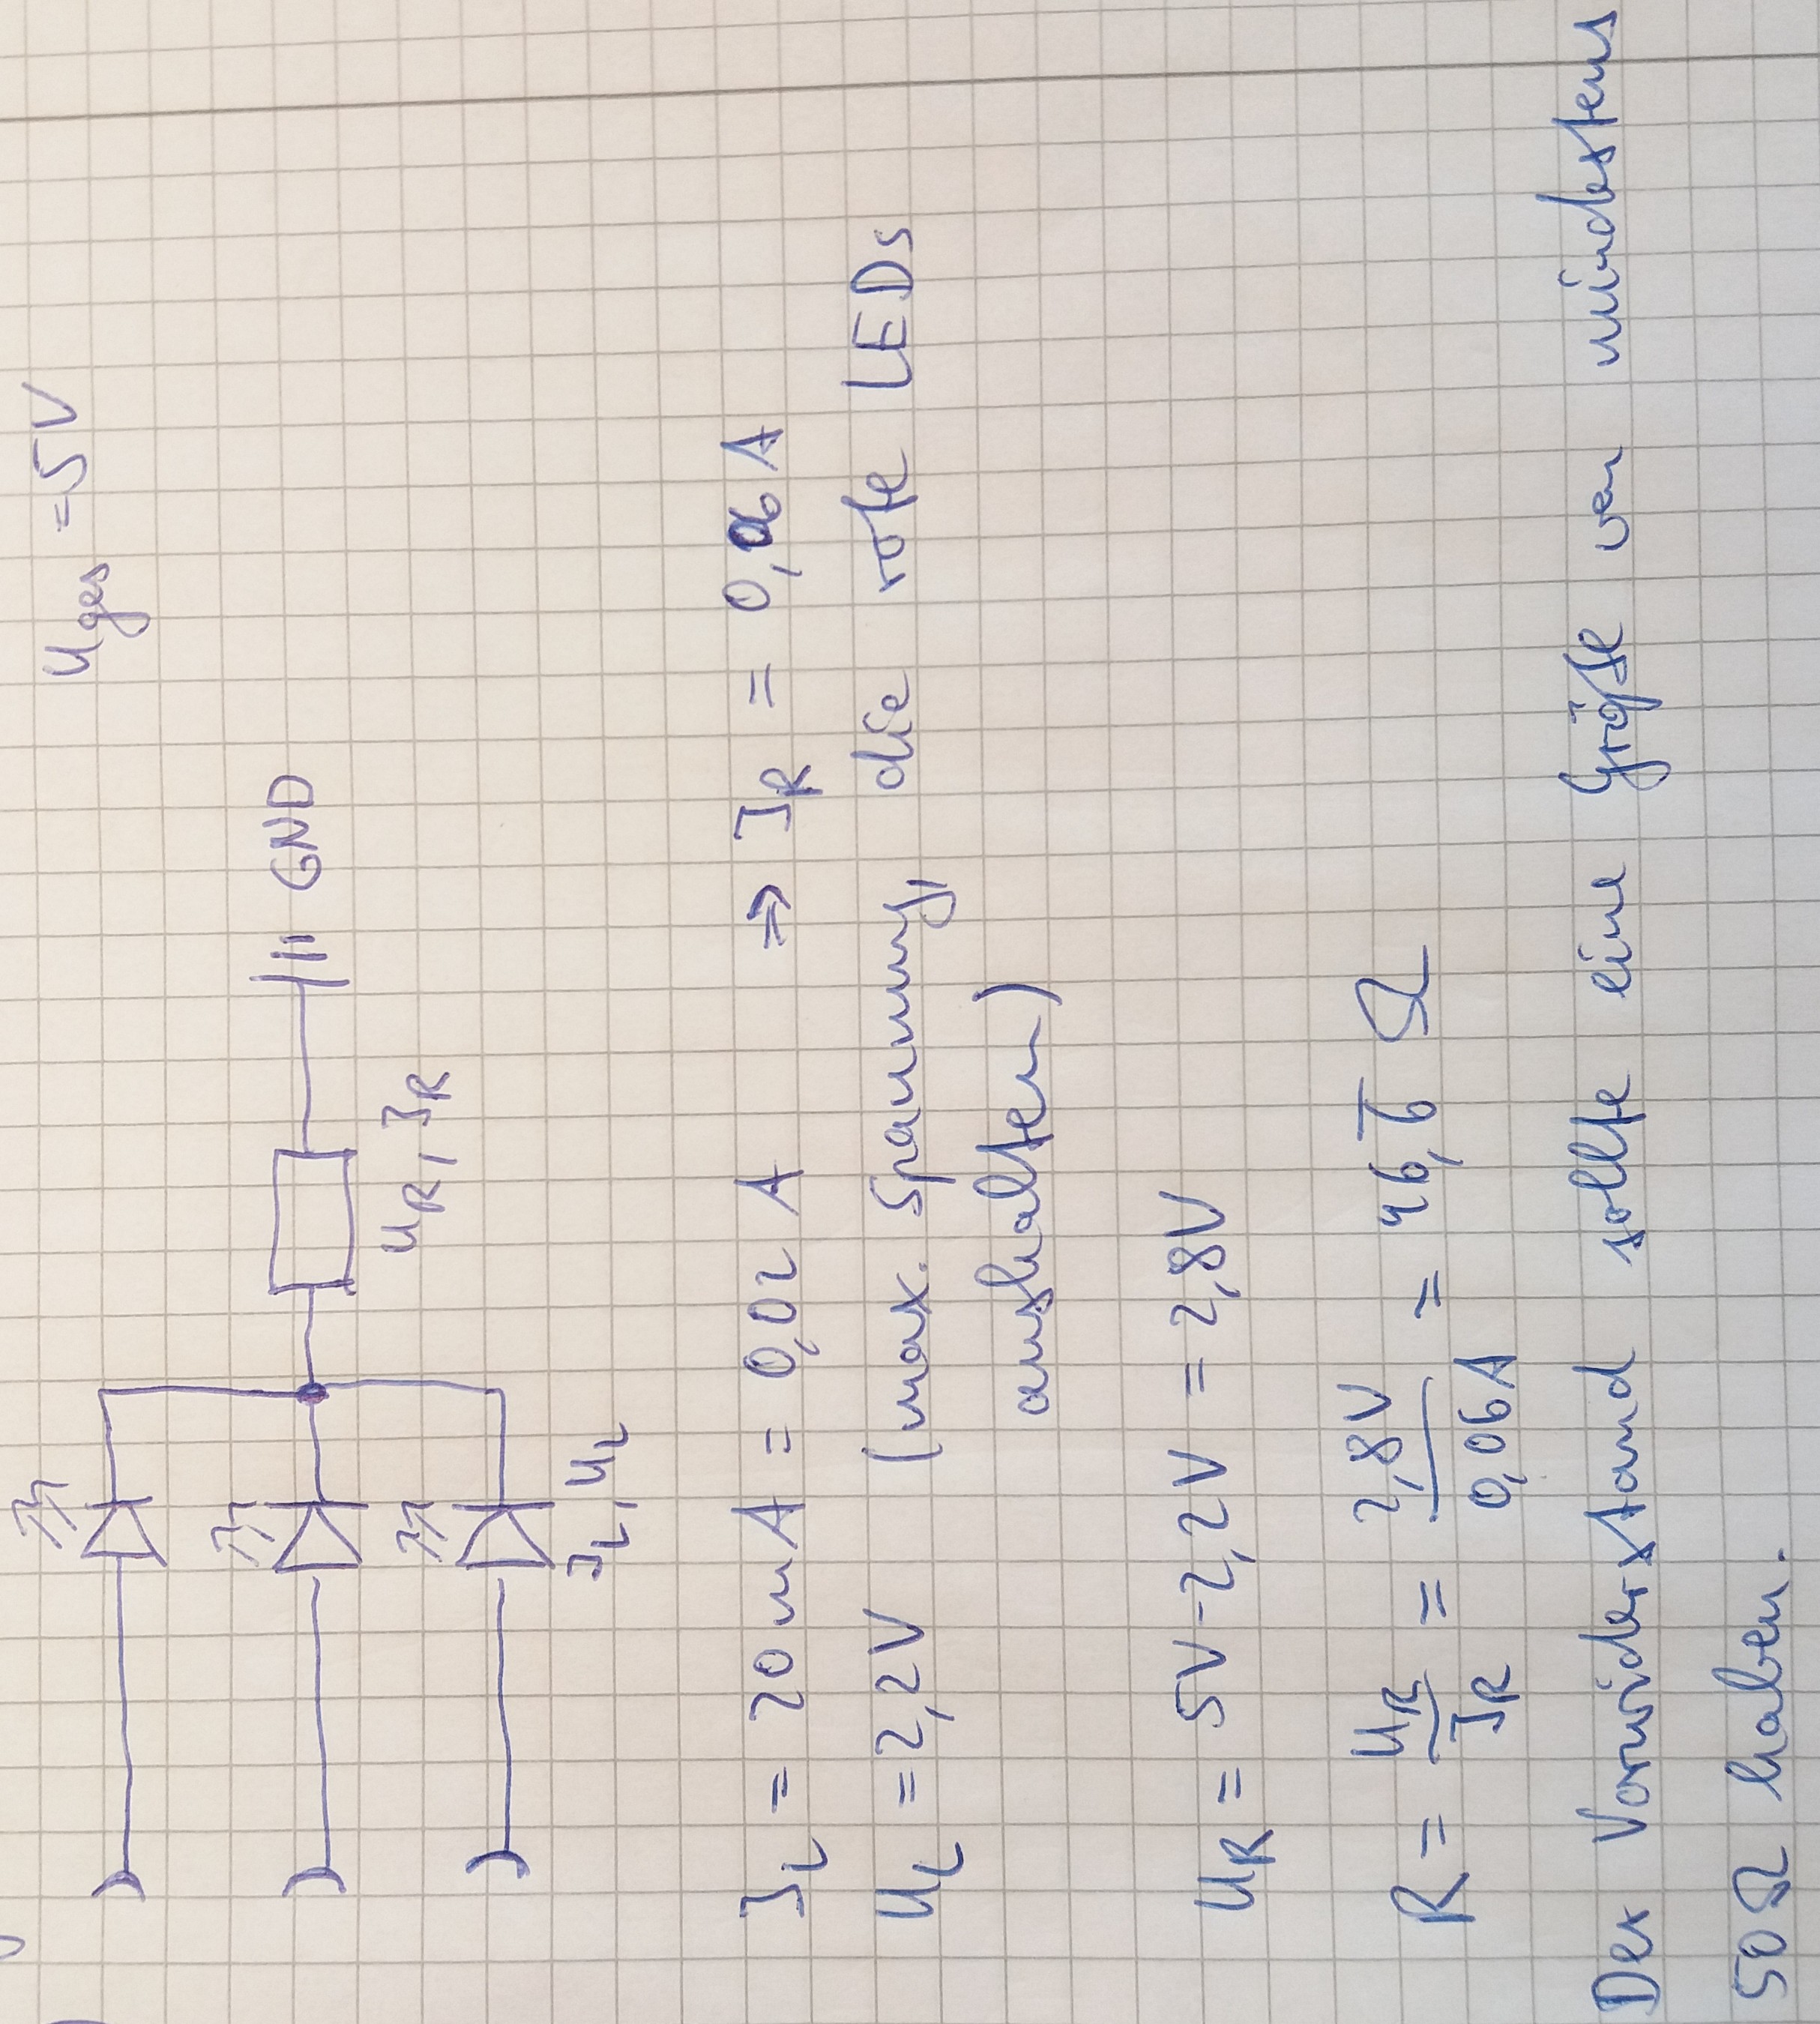 U_ges = 5V
GND
U_R, I_R
I_L, U_L
I_L = 20mA = 0,02 A ⇒ I_R = 0,06 A
U_L = 2,2V (max. Spannung, die rote LEDs
aushalten)
U_R = 5V - 2,2V = 2,8V
R = U_R/I_R = 2,8V/0,06A = 46,6̅ Ω
Der Vorwiderstand sollte eine Größe von mindestens
50Ω haben.